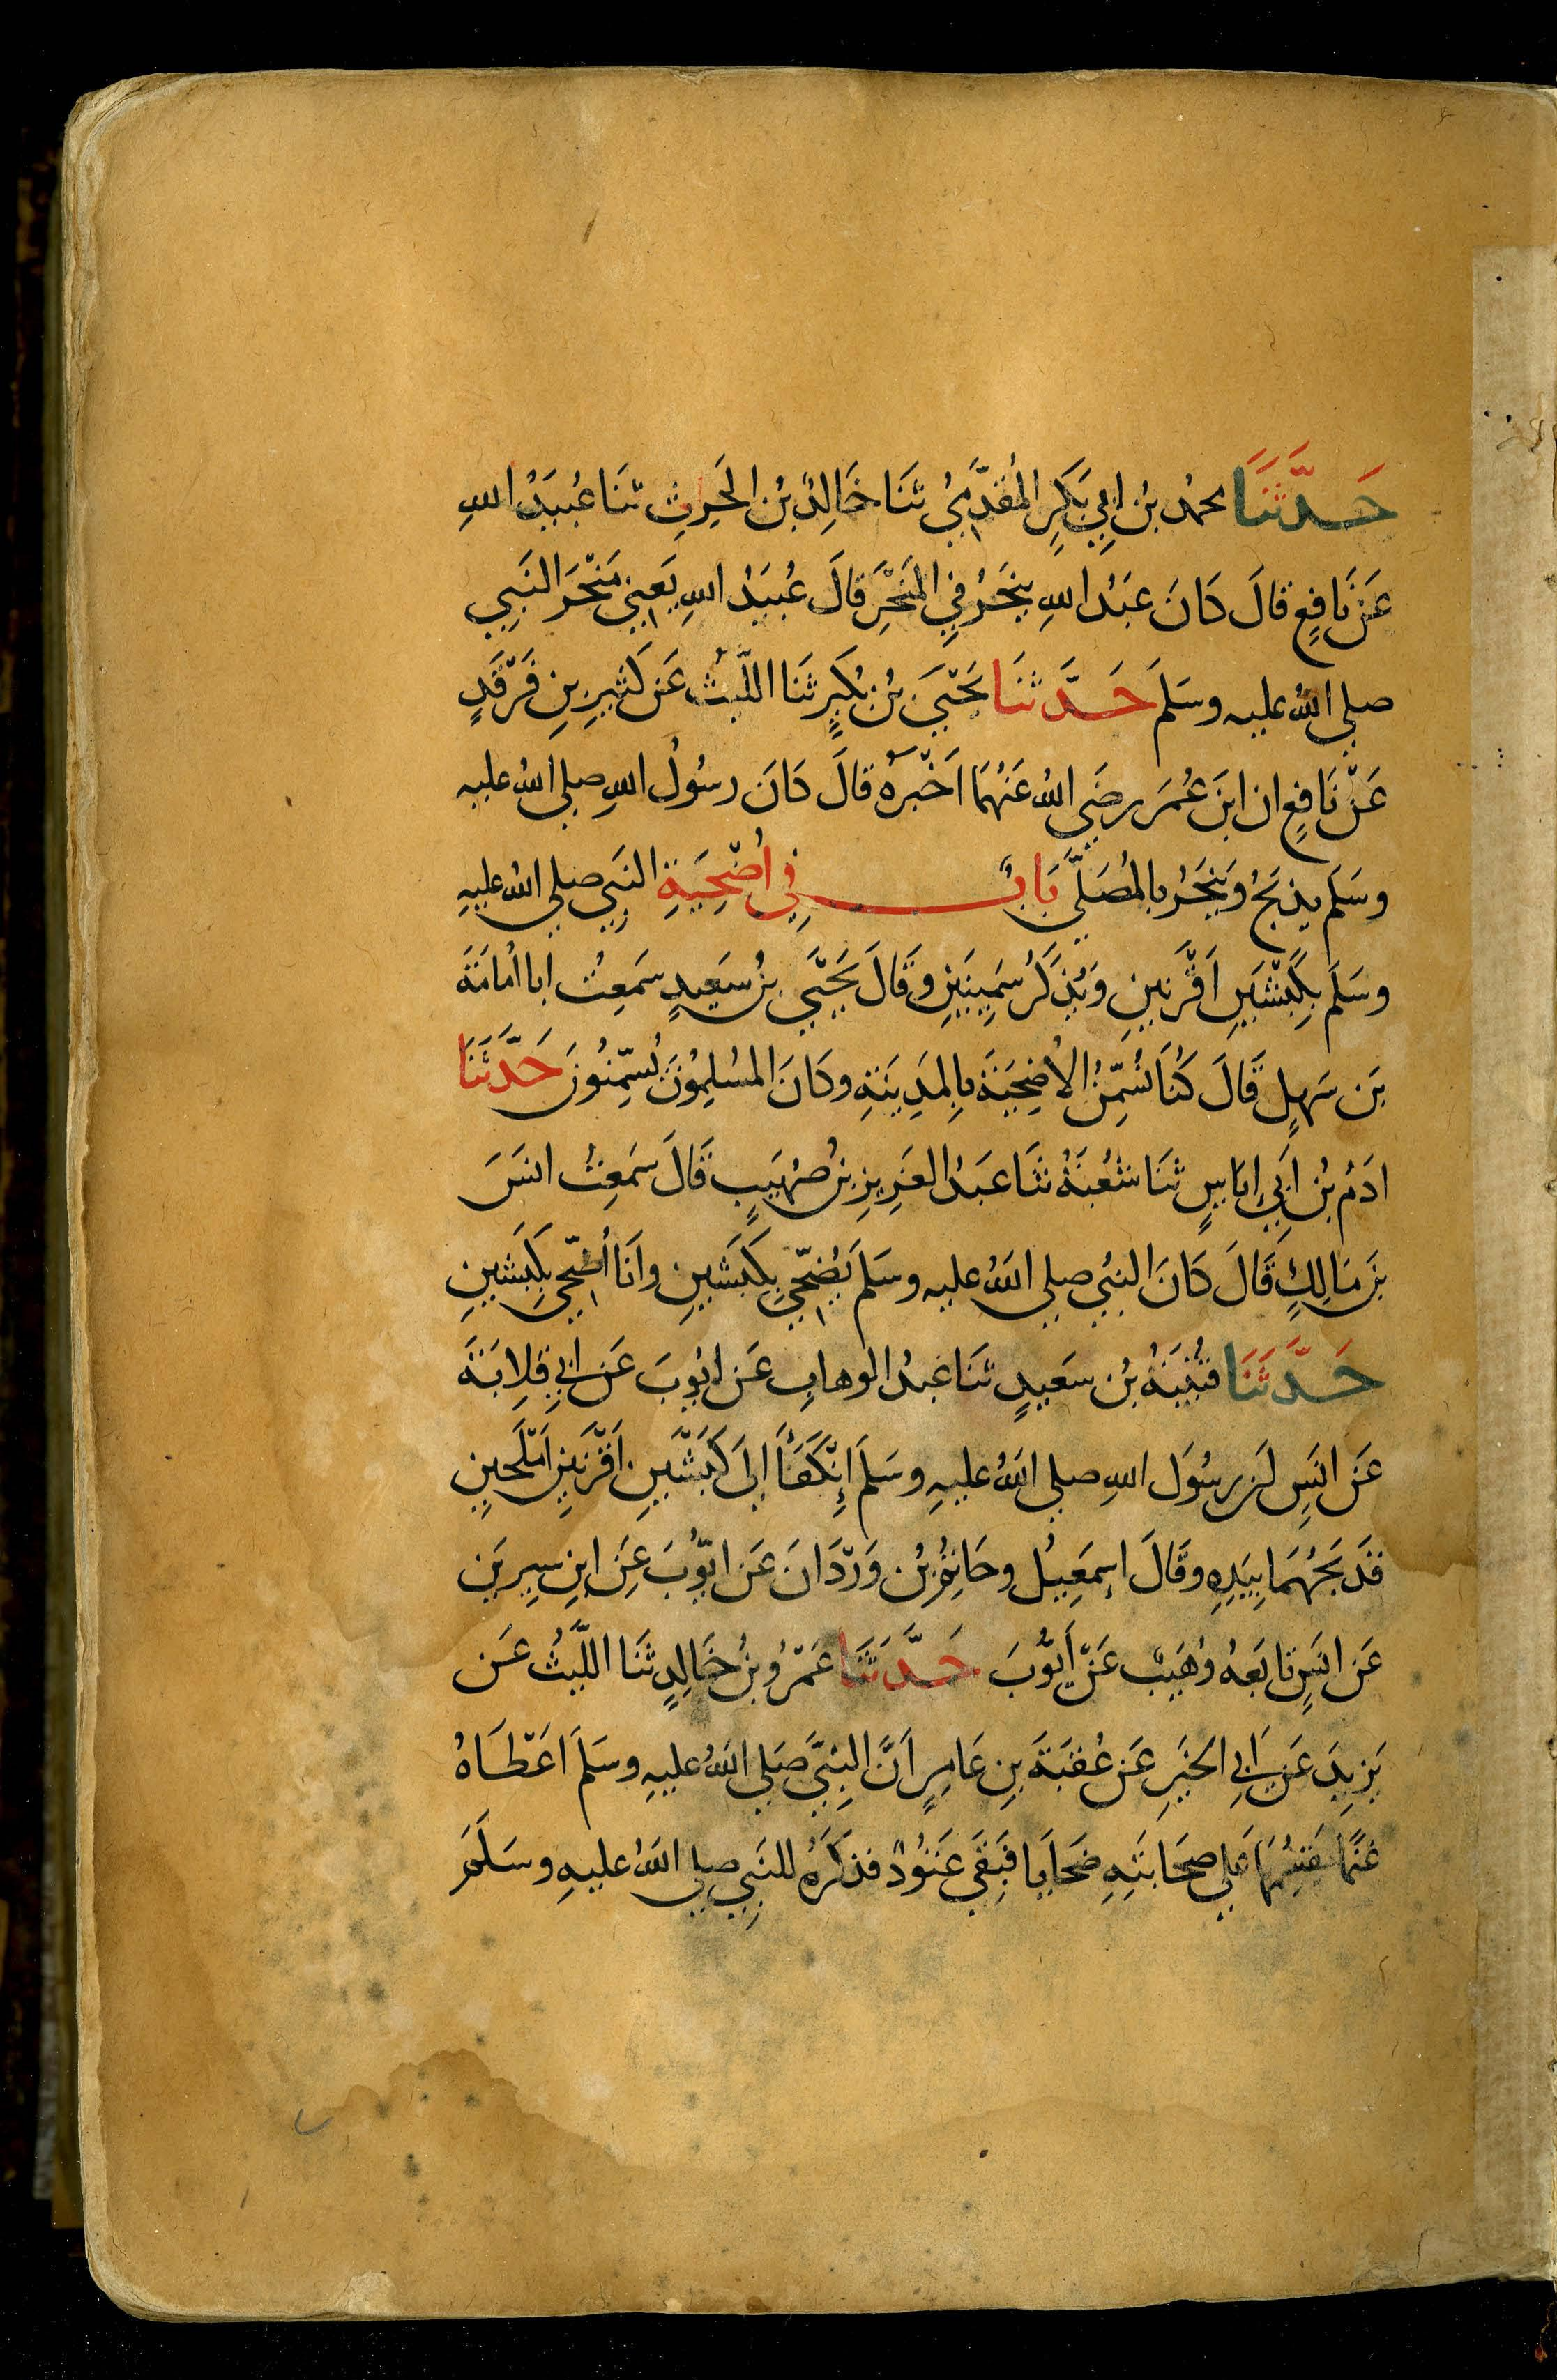 حَدَّثَنَا محمدُ بنُ ابِي بَكرٍ المُقَدَّمِيُّ ثنَا خَالِدُ بنُ الحَرِثِ ثنَا عُبَيدُ اللهِ
عَن نَافِعٍ قالَ كانَ عَبدُ اللهِ ينحَرُ فِي المَنحَرِ قالَ عُبَيدُ اللهِ يَعنِي مَنحَرَ النَبِي
صلي اللهُ عليه وسَلَمَ حَدَّثنَا يَحيَى بنُ بُكَيرٍ ثَنَا اللَّيثُ عَن كَثِيرِ بنِ فَرقَدٍ
عَن نَافِعٍ ان ابنَ عُمَرَ رضَي اللهُ عَنهُمَا اَخبَرَهُ قالَ كانَ رسُولُ اللهِ صلي اللهُ عليه
وسَلَم يذبَحُ وَينحَرُ بالمُصَلَّى بَابُ فِي اُضحِيَةِ النَبِي صلي اللهُ عليهِ
وسَلَمَ بِكَبشَينِ اَقرَنَينِ وَيُذكَرُ سَمِينَينِ وقَالَ يَحيَى بنُ سَعِيدٍ سَمِعتُ ابا اُمَامَةَ
بنَ سَهلٍ قَالَ كُنَا نُسَمِّنُ الاُضحِيَةَ بِالمَدِينَةِ وكَانَ المسُلِمُونَ يُسَمِّنُونَ حَدَّثَنَا
ادَمُ بنُ اَبِي اِيَاسٍ ثنَا شُعبَةُ ثنَا عَبدُ العَزِيزِ بنُ صُهَيبٍ قَالَ سَمِعتُ انسَ
بنَ مَالِكٍ قَالَ كَانَ النبُي صلي اللهُ عليه وسَلَمَ يُضَحِّي بِكَبشَينِ وانَا اُضَحِّي بِكَبشَينِ
حَدَّثَنَا قُتَيبَةُ بنُ سَعِيدٍ ثنَا عَبدُ الوهابِ عَن ايُوبَ عَن ابِي قِلابَةَ
عَن انَسٍ ان رسُولَ اللهِ صلي اللهُ عليهِ وسَلَمَ إِنكَفَأَ إلىَ كَبشَينِ اَقرَنَينِ اَملَحينِ
فذَبحَهُمَا بِيَدِهِ وقَالَ اسمَعِيلُ وحَاتِمُ بنُ وَردَانَ عَن ايُّوبَ عَنِ ابنِ سِيرِين
عَن انَسٍ تابَعهُ وُهَيبٌ عَن اَيُّوبَ حَدَّثَنَا عَمرُو بنُ خَالِدٍ ثنَا اللَّيثُ عَن
يَزِيدَ عَن ابِي الخَيرِ عَن عُقبَةَ بنِ عَامِرٍ اَنَّ النبِيَّ صَلي اللهُ عليهِ وسَلَمَ اَعطَاهُ
غنَمًا يقسِمُهَا علي صحَابتِهِ ضحَايا فبَقَي عَتوُدٌ فذكَرَهُ للنَبِي صلي اللهُ عليهِ وسَلَمَ